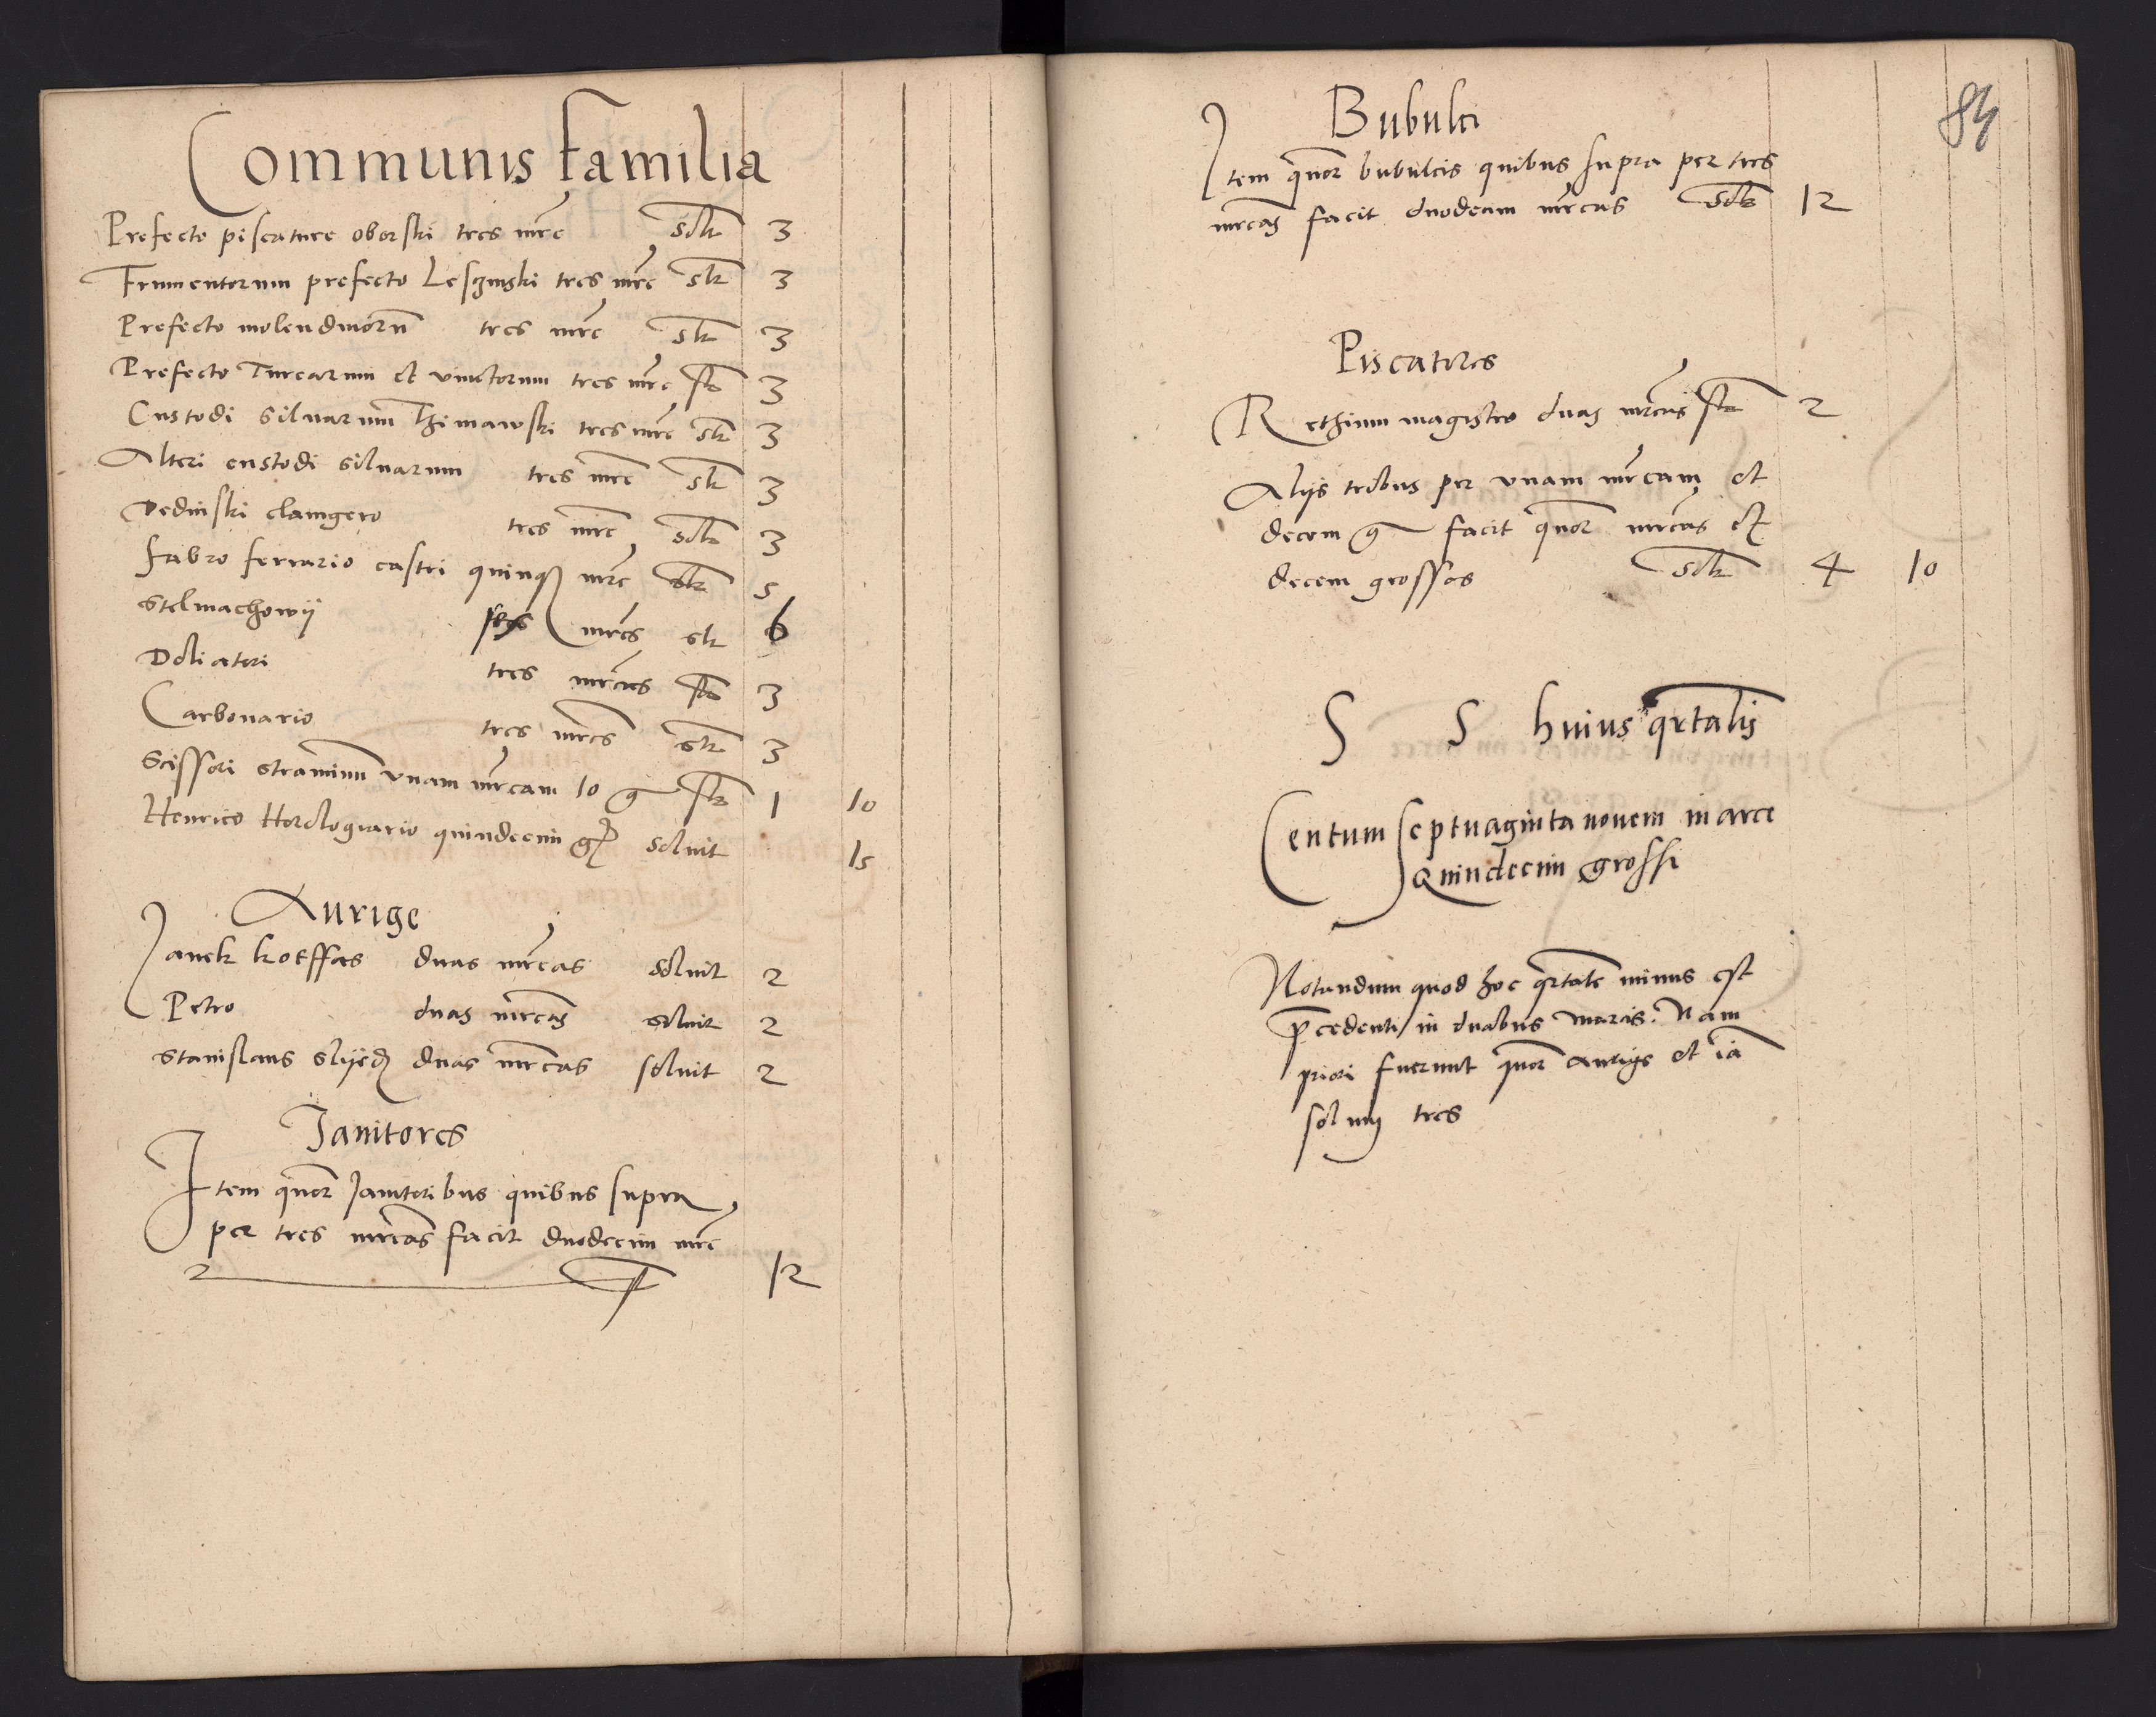 Communis familia
Prefecto piscature oborski tres mrc solt 3
Frumentorum prefecto Lesczinski tres mrc slt 3
Prefecto molendinorũ tres mrc slt 3
Prefecto Turcarum et vinctorum tres mrc slt 3
Custodi siluarum Thimawski tres mrc slt 3
Alteri custodi siluarum tres mrc slt 3
Dedinski clauigero tres mrc solt 3
Fabro ferrario castri quinqз mrc slt 5
Stelmachowij sex mrcs slt 6
Doliatori tres mrcas slt 3
Carbonario tres mrcs slt 3
Scissori straminũ vnam mrcam 10 g slt 1 10
Henrico Horologiario quindecim g soluit 15
Aurige
Janek koeffas duas mrcas soluit 2
Petro duas mrcas soluit 2
Stanislaus duas mrcas soluit 2
Janitores
Item quor Janitoribus quibus supra
per tres mrcas facit duodecim mrc
12
84
Bubulci
Item quor bubulcis quibus supra per tres
mrcas facit duodecim mrcas solt 12
Piscatores
Rethium magistro duas mrcas slt 2
Alijs tribus per vnam mrcam et
decem g facit quor mrcas et
decem grossos solt 4 10
S S huius qrtalis
Centum septuaginta novem marce
Quindecim grossi
Notandum quod hoc qrtale minus est
pcedenti in duabus marcis. Nam
priori fuerunt quor aurige et iã
solum tres